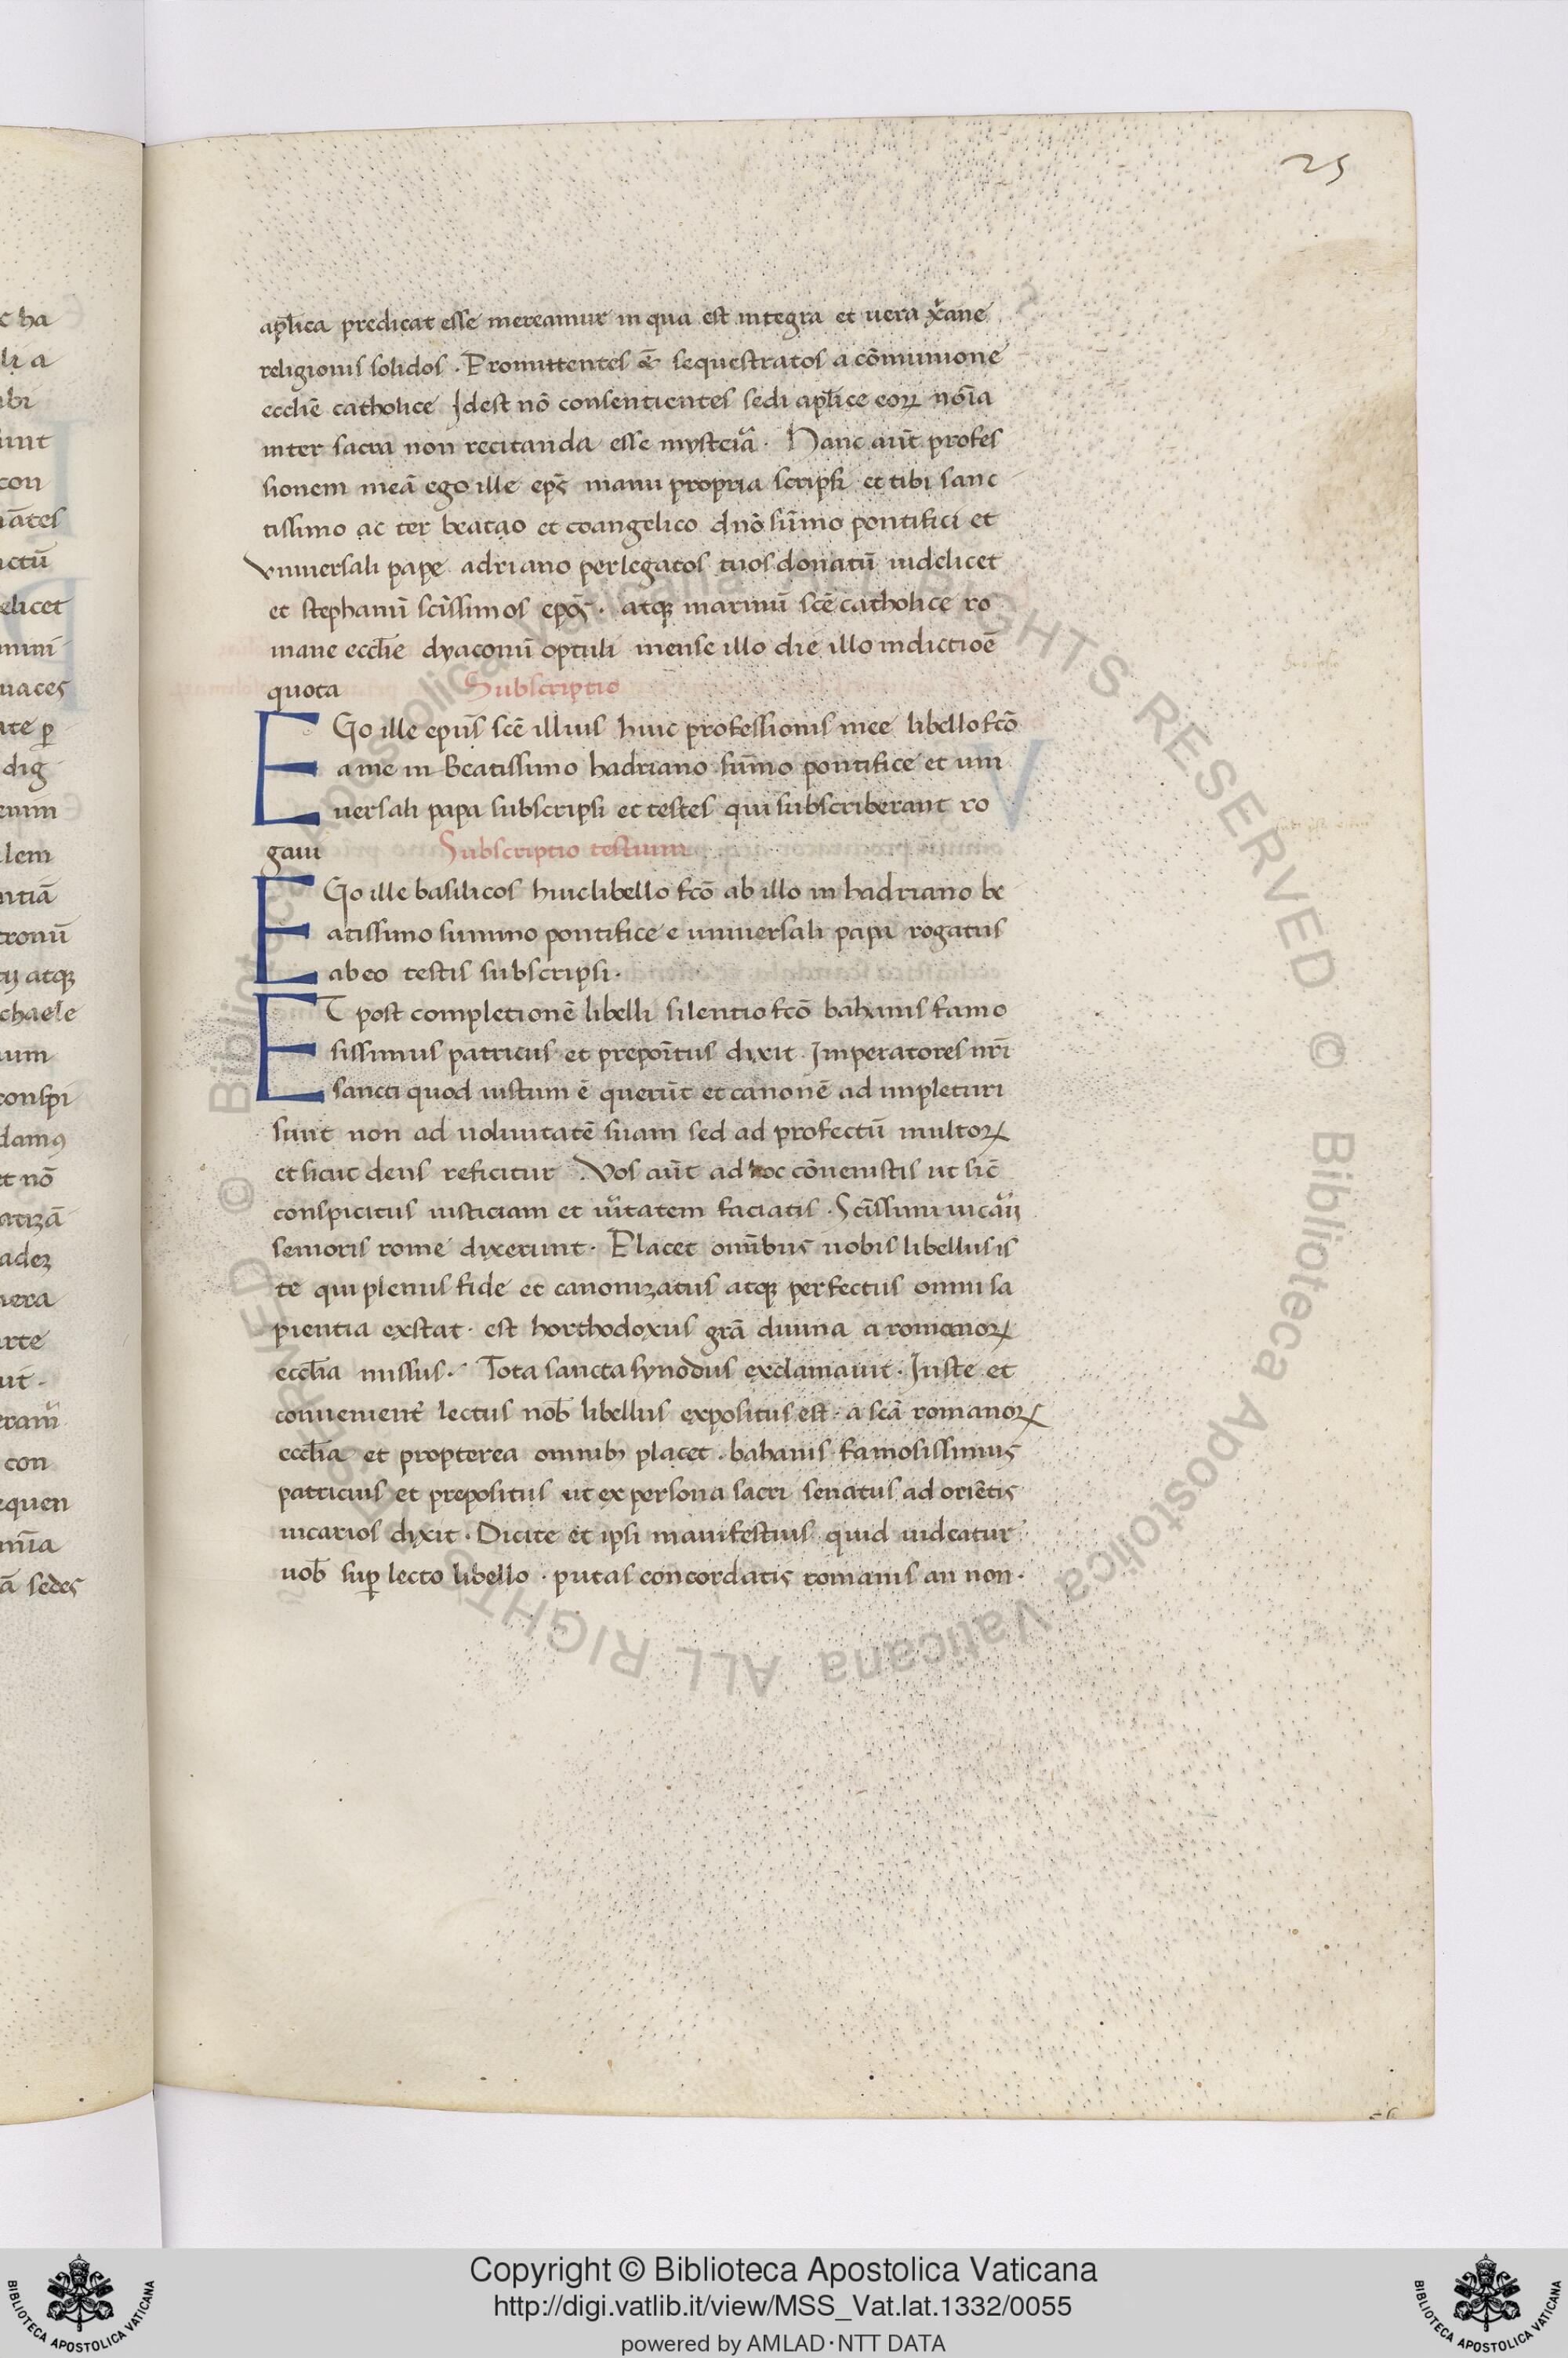 25
apl̄ica predicat esse mereamur in qua est integra et uera xp̄iane
religionis solidos . Promittentes & sequestratos a cōmunione
eccl̄ie catholice Idest nō consentientes sedi apl̄ice eoꝝ nōia
inter sacra non recitanda esse mysteia . Hanc aūt profes
sionem meā ego ille ep̄s manu propria scripsi et tibi sanc
tissimo ac ter beatao et coangelico dn̄o sūmo pontifici et
vniuersali pape adriano per legatos tuos donatū uidelicet
et stephanū sc̄issimos ep̄os . atqꝫ marinū sc̄e catholice ro
mane eccl̄ie dyaconū optuli mense illo die illo indictioē
quota Subscriptio
EGo ille ep̄us sc̄e illius huic professionis mee libello fc̄o
a me in Beatissimo hadriano sūmo pontifice et uni
uersali papa subscripsi et testes qui subscriberant ro
gaui Subscriptio testium
EGo ille basilicos huic libello fc̄o ab illo in hadriano be
atissimo summo pontifice e uniuersali papa rogatus
ab eo testis subscripsi .
ET post completionē libelli silentio fc̄o bahanis famo
sissimus patricius et prepoītus dixit Imperatores nr̄i
sancti quod iustum ē querūt et canonē adimpleturi
sunt non ad uoluntatē suam sed ad profectū multoꝝ
et sicut deus reficitur . Vos aūt ad hoc cōuenistis ut sic̄
conspicitus iusticiam et ūitatem faciatis . Sc̄issimi uicarii
senioris rome dixerunt . Placet omībus nobis libellus is
te qui plenus fide et canonizatus atqꝫ perfectus omni sa
pientia exstat . est horthodoxus grā diuina a romanoꝝ
eccl̄ia missus . Tota sancta synodus exclamauit . Iuste et
conuenient̄ lectus nob̄ libellus expositus est . a sc̄a romanoꝝ
eccl̄ia et propterea omnibꝫ placet . bahanis famosissimus
patricius et prepositus ut ex persona sacri senatus ad oriētis
uicarios dixit . Dicite et ipsi manifestius quid uideatur
uob̄ suꝑ lecto libello . putas concordatis romanis an non .
c ha
li a
ibi
con
ctū
elicet
uaces
ate ꝑ
dig
lem
ntiā
tronū
atqꝫ
chaele
um
conspi
damꝰ
et nō
atizā
uera
rte
con
equen
ā sedes
© Biblioteca Apostolica Vaticana ALL RIGHTS RESERVED © Biblioteca Apostolica Vaticana ALL RIGHTS RESERVED
Copyright © Biblioteca Apostolica Vaticana
http://digi.vatlib.it/view/MSS_Vat.lat.1332/0055
powered by AMLAD·NTT DATA
BIBLIOTECA APOSTOLICA VATICANA
BIBLIOTECA APOSTOLICA VATICANA